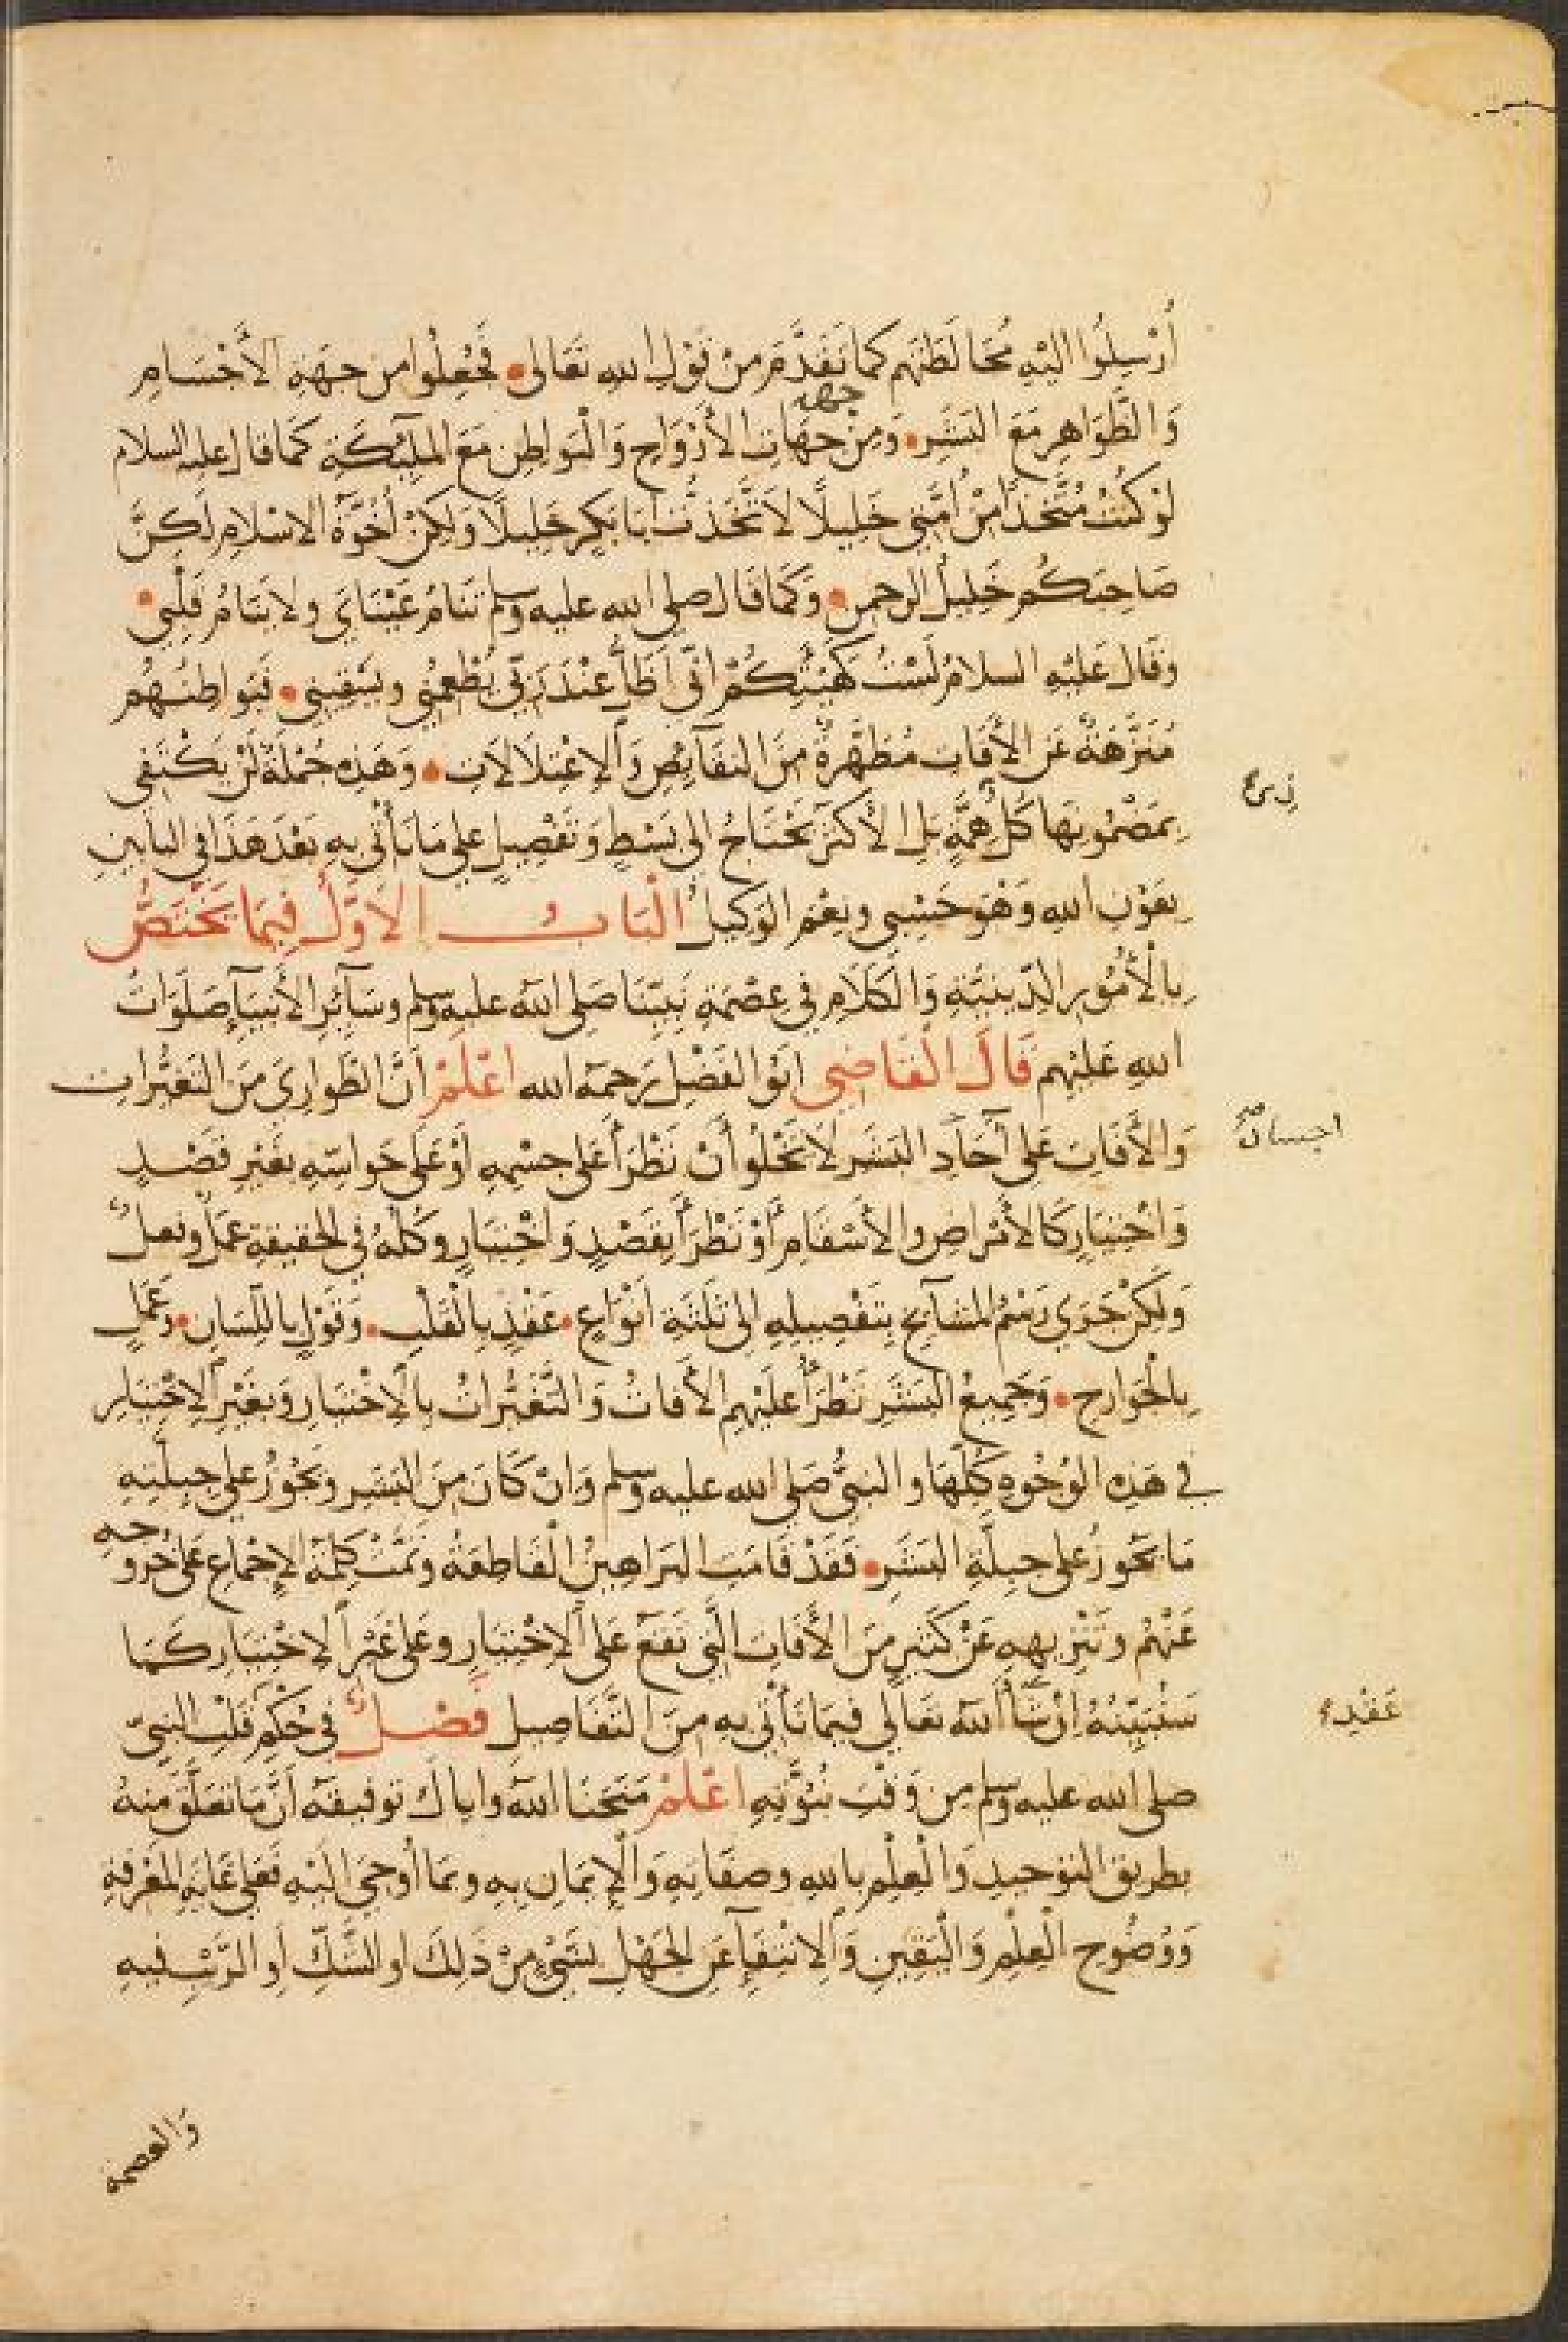 أُرْسِلُوا اليْهِ مُخَالَطَتَهم كما تَقَدَّمَ مِنْ قَوْلِ الله تَعَالى • فَجُعِلُوا من جهَةِ الأَجْسَامِ
وَالظَّوَاهِرِ مَعَ البَشَرِ • وَمِنْ جهَاتِ الأَرْوَاحِ وَالْبَوَاطِنِ مَعَ المَلئِكَةِ كَمَا قال عليه السلام
جهه
لَوْ كُنْتُ مُتَّخِذًا مِنْ أُمَّتِي خَلِيلًا لَاتَّخَذْتُ ابَا بَكرٍ خَلِيلًا وَلكِنْ أُخُوَّةُ الاسْلامِ لَكِنَّ
صَاحِبَكُم خَلِيلُ الرحمن • وَكَمَا قَال صلى الله عليه وسلم تَنَامُ عَيْنَايَ ولا يَنَامُ قَلْبي •
وَقَال عَلَيْهِ السلامُ لَسْتُ كَهَيْئَتِكُمْ انّي أَظَلُّ عِنْدَ رَبّي يُطْعِمُني ويَسْقِيني • فَبَواطِنُهُم
مُنَزَّهَةٌ عَنِ الآفَاتِ مُطَهَّرةٌ مِنَ النقَآئِصِ وَالإعْتِلَالَاتِ • وَهَذِه جُمْلَةٌ لَنْ يَكْتَفي
بِمَضْمُونِها كُلُّ هِمَّةٍ بَلِ الأكثَرُ يَحْتَاجُ الى بَسْطٍ وَتَفْصِيلٍ على مَا نَأتي بِهِ بَعْدَ هَذَا في البَابَينِ
بِعَوْنِ الله وَهْوَ حَسْبي ونِعْمَ الوَكيلُ الْبَابُ الاَوَّلُ فِيمَا يَخْتَصُّ
بِالْأُمُورِ الدِّينيَّةِ وَالْكَلَامِ في عِصْمَةِ نَبِيِّنَا صَلى اللهُ عليه وسلم وسَآئِرِ الأَنْبِيَآءِ صَلَوَاتُ
الله عَلَيْهِم قَالَ الْقَاضِي ابَوُ الفَضْلِ رَحِمَهُ الله اعْلَمْ أَنَّ الطَّوَارِيَ مِنَ التَّغَيُّراتِ
وَالآفَاتِ عَلَى آحَادِ البَشَرِ لَا تَخْلُوأَنْ تَطْرَأَ عَلَى جِسْمِهِ أَوْ عَلَى حَواسِّهِ بغَيْرِ قَصْدٍ
وَاخْتِيَارٍ كَالأَمْرَاضِ والأَسْقَامِ أَوْ تَطْرَأَ بِقَصْدٍ وَاخْتِيَارٍ وكُلُّهُ في الحقيقةِ عَمَلٌ وفعلٌ
وَلَكِنْ جَرَي رَسْمُ المشَآيخِ بِتَفْصِيلِهِ الى ثَلَثَةِ أَنْوَاعٍ • عَقْدٍ بِالْقَلْبِ • وَقَوْلٍ بِاللِّسَانِ • وَعَمَلٍ
بِالْجَوَارِحِ • وَجَمِيعُ البَشَرِ تَطْرَأُ عَلَيْهِم الآفَاتُ وَالتَّغَيُّرَاتُ بِالِاخْتِيَارِ وَبِغَيْرِ الِاخْتِيَارِ
في هَذِهِ الوُجُوهِ كُلِّهَا والنبيُّ صَلى الله عليه وسلم وَانْ كَانَ مِنَ البَشَرِ ويَجُوزُ على جِبِلَّتِهِ
مَا يَجُوزُ على جِبِلَّةِ البَشَرِ • فَقَدْ قَامَتِ البَرَاهِينُ الْقَاطِعَةُ وتَمَّتْ كَلِمَةُ الإجْمَاعِ عَلَى خُرُوجِهِ
عَنْهُم وتَنْزِيهِهِ عَنْ كَثيرٍ مِنَ الآفَاتِ الَّتي تَقَعُ عَلَى الِاخْتِيَارِ وعَلَى غَيْرِ الِاخْتِيَارِ كَمَا
سَنُبَيِّنُهُ اِنْ شَآءَ اللهُ تعَالى فِيمَا نَأْتي بِهِ مِنَ التَّفَاصِيل فَصْلٌ في حُكْمِ قَلْبِ النبيّ
صلى الله عليه وسلم من وَقْتِ نُبُوَّتِهِ اعْلَمْ مَنَحَنَا اللهُ واياكَ توفيقَهُ أَنَّ مَا تَعَلَّقَ مِنهُ
بطريق التوْحيدِ وَالْعِلْمِ بالله وصفَاتِهِ وَالْإيمَانِ بِهِ وبمَا أُوحِيَ الَيْهِ فَعَلى غَايَةِ المَعْرِفةِ
وَوُضُوحِ الْعِلْمِ وَالْيَقِينِ وَالِانْتِفَآءِ عَنِ الْجَهْلِ بشَيْءٍ مِنْ ذَلِكَ او الشَّكِّ أو الرَّيْبِ فيهِ
عَقْدِه
وَالعصمة